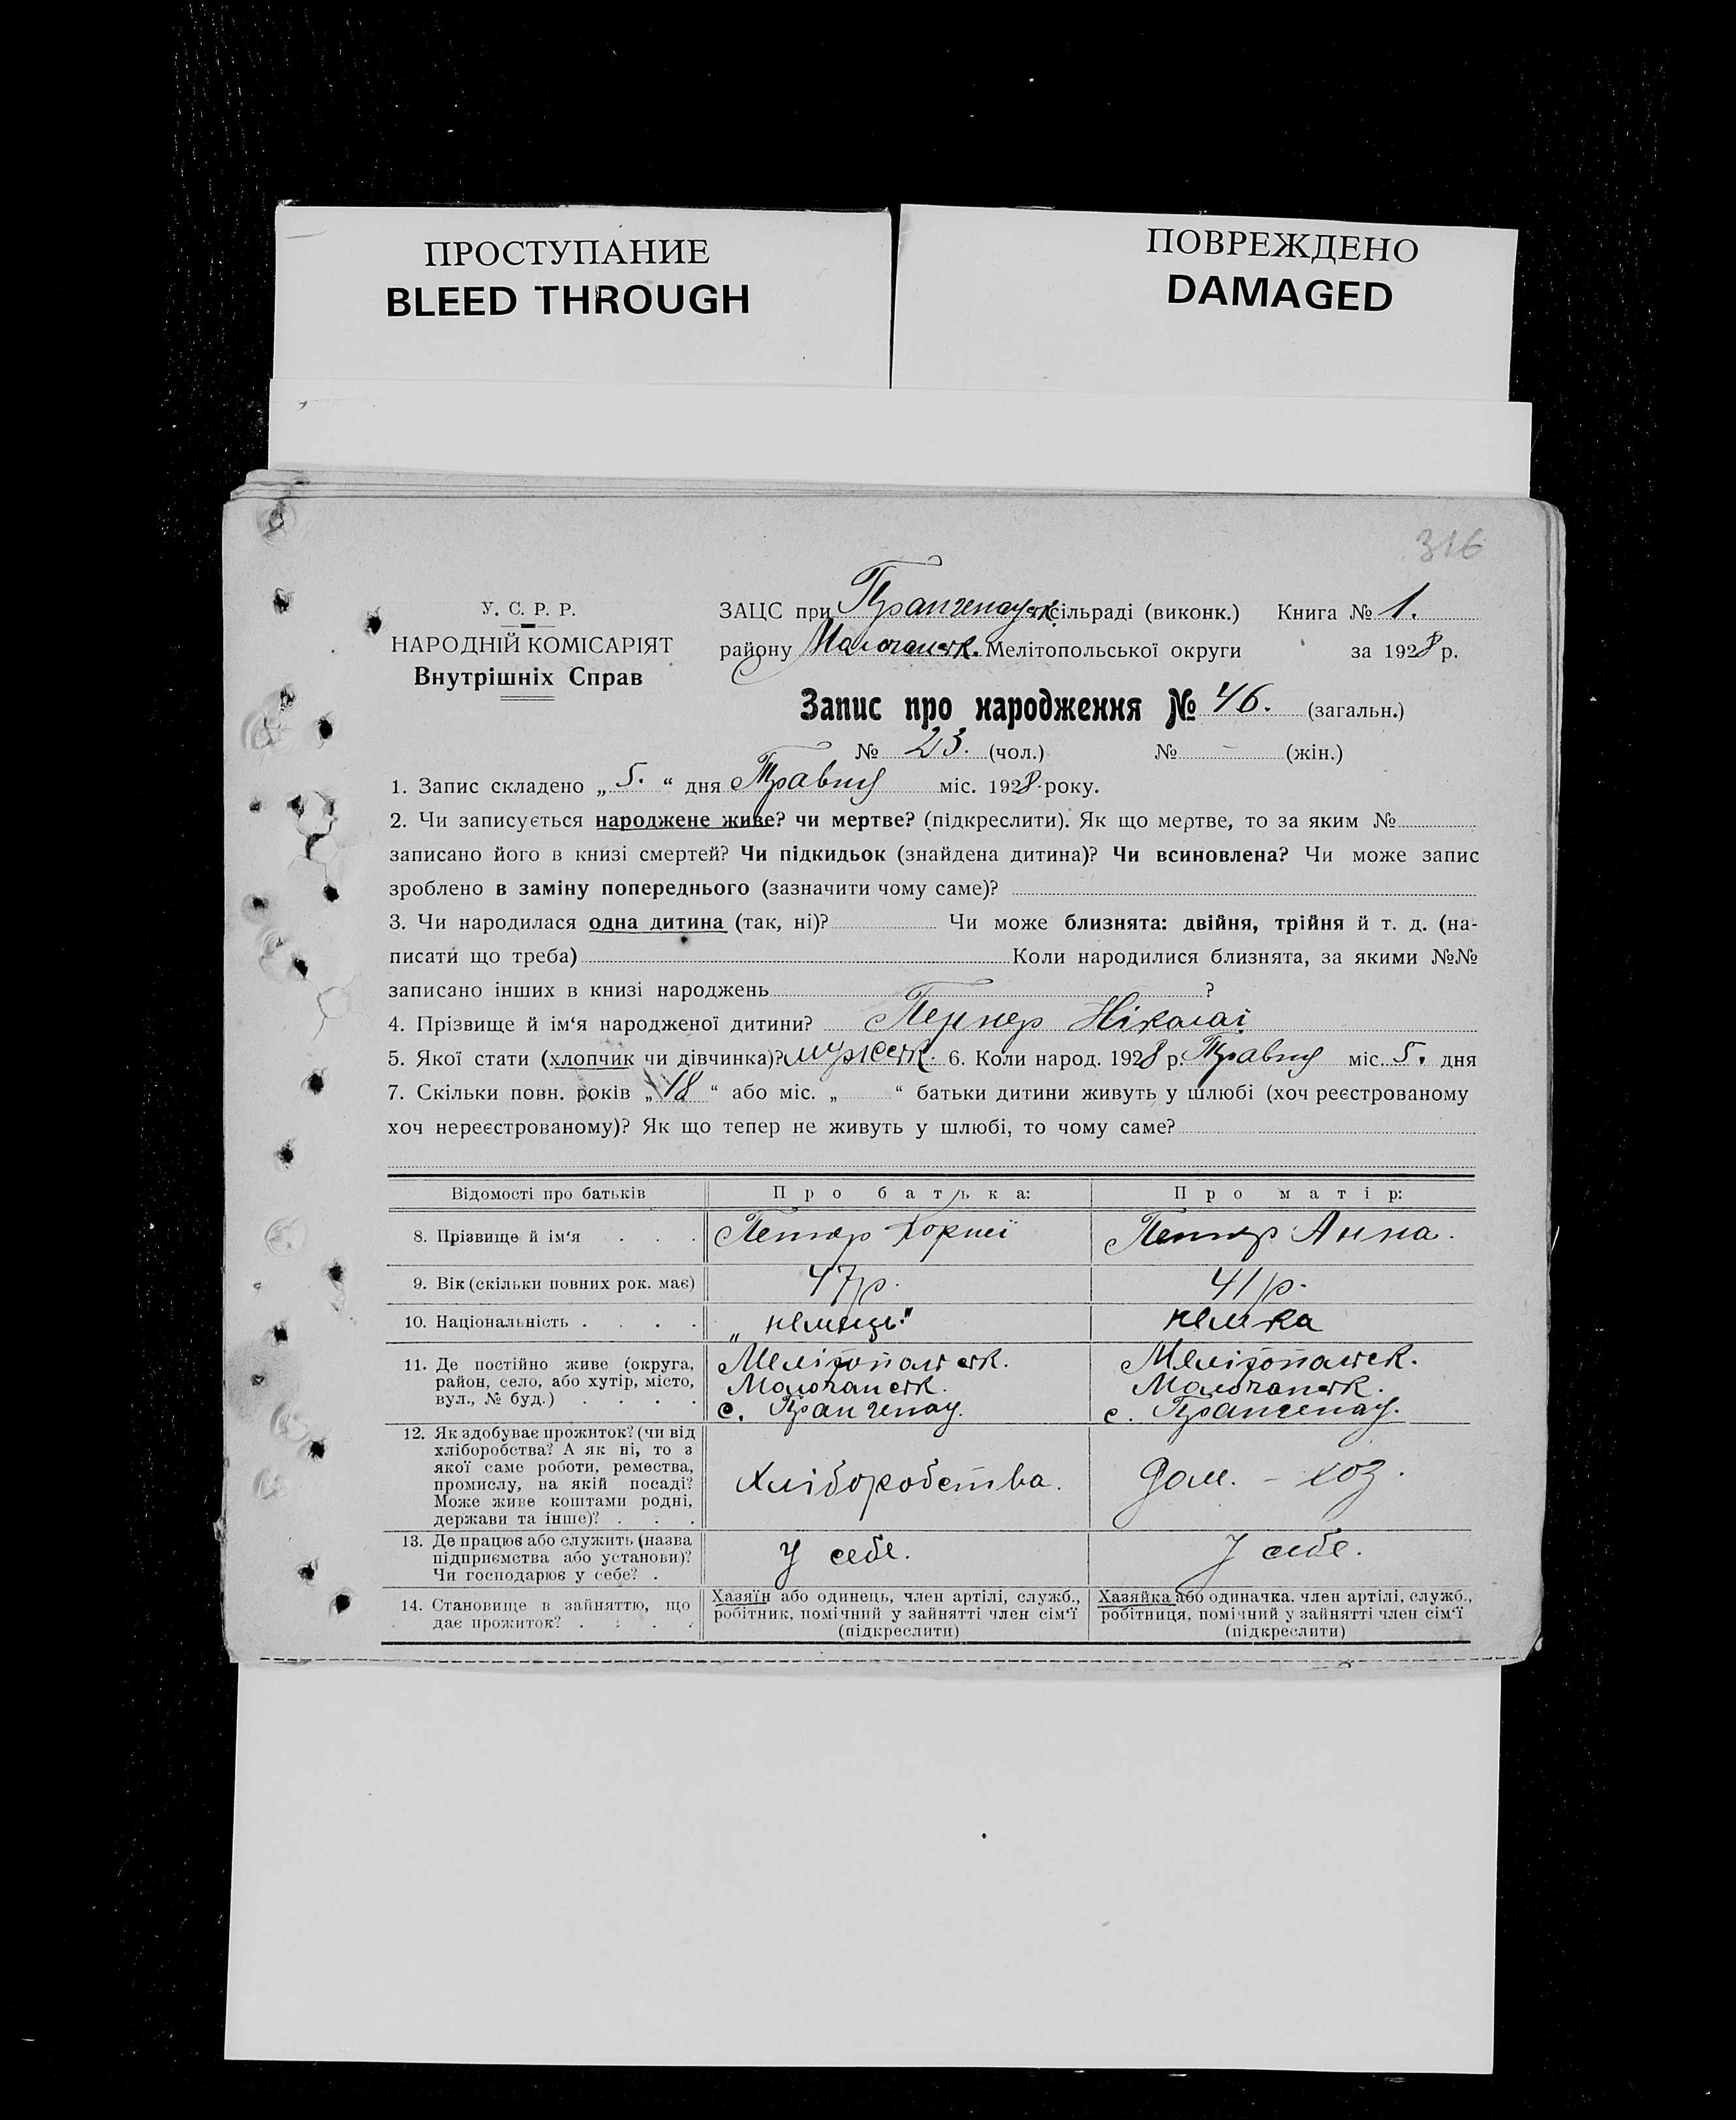 ПРОСТУПАНИЕ
BLEED THROUGH
ПОВРЕЖДЕНО
DAMAGED
316
У. С. Р. Р.
НАРОДНІЙ КОМІСАРІЯТ
Внутрішніх Справ
ЗАЦС при Прангенауск. сільраді (виконк.) Книга № 1.
району Молочанськ. Мелітопольської округи за 1928 р.
Запис про народження № 46. (загальн.)
№ 23. (чол.) № – (жін.)
1. Запис складено „ 5. “ дня Травня міс. 1928 року.
2. Чи записується народжене живе? чи мертве? (підкреслити). Як що мертве, то за яким №
записано його в книзі смертей? Чи підкидьок (знайдена дитина)? Чи всиновлена? Чи може запис
зроблено в заміну попереднього (зазначити чому саме)?
3. Чи народилася одна дитина (так, ні)? Чи може близнята: двійня, трійня й т. д. (на-
писати що треба) Коли народилися близнята, за якими №№
записано інших в книзі народжень ?
4. Прізвище й ім‘я народженої дитини? Ніколаї
5. Якої стати (хлопчик чи дівчинка)? мужськ. 6. Коли народ. 1928 р. Травня міс. 5. дня
7. Скільки повн. років „ 18 “ або міс. „ “ батьки дитини живуть у шлюбі (хоч реєстрованому
хоч нереєстрованому)? Як що тепер не живуть у шлюбі, то чому саме?
Відомості про батьків Про батька: Про матір:
8. Прізвище й ім‘я . . . Петкер Корнеї Петкер Анна.
9. Вік (скільки повних рок. має) 47 р. 41 р.
10. Національність . . . . „ німець." немка
11. Де постійно живе (округа,
район, село, або хутір, місто,
вул., № буд.) . . . .
Мелітопольск.
Молочанськ.
с. Прангенау.
Мелітопольск.
Молочанськ.
с. Прангенау.
12. Як здобуває прожиток? (чи від
хліборобства? А як ні, то з
якої саме роботи, ремества,
промислу, на якій посаді?
Може живе коштами родні,
держави та інше)? . . .
Хліборобства.
Дом. – хоз.
13. Де працює або служить (назва
підприємства або установи)?
Чи господарює у себе? .
У себе.
У себе.
14. Становище в зайняттю, що
дає прожиток? . . . .
Хазяїн або одинець, член артілі, служб.,
робітник, помічний у зайнятті член сім‘ї
(підкреслити)
Хазяйка або одиначка, член артілі, служб.,
робітниця, помічний у зайнятті член сім‘ї
(підкреслити)